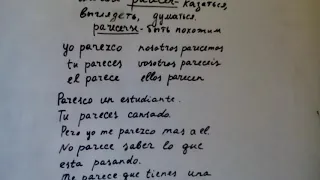 parecer - казаться,
выглядеть, думаться.
parecerse - быть похожим
yo parezco nosotros parecemos
tu pareces vosotros pareceis
el parece ellos parecen
Paresco un estudiante.
Tu pareces cansado.
Pero yo me parezco mas a el.
No parece saber lo que
esta pasando.
Me parece que tienes una